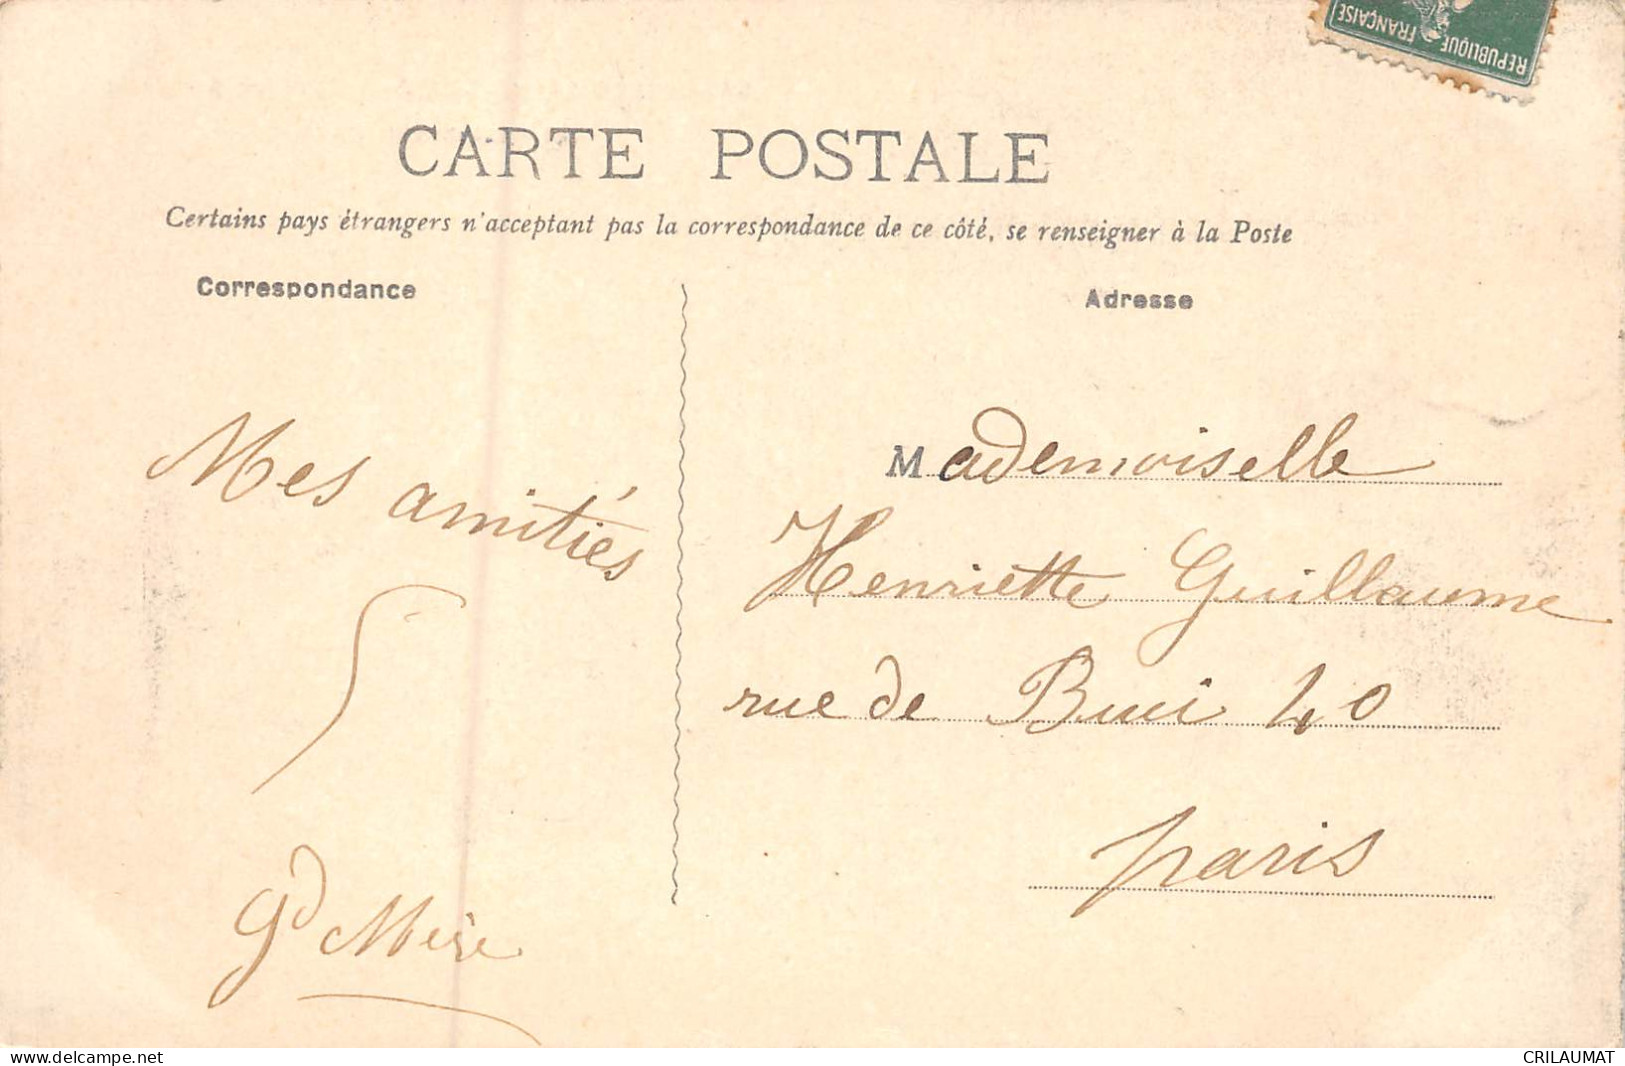 RÉPUBLIQUE FRANÇAISE
CARTE POSTALE
Certains pays étrangers n'acceptant pas la correspondance de ce côté, se renseigner à la Poste
Correspondance
Adresse
Mes amitiés
Gd Mère
Mademoiselle
Henriette Guillaume
rue de Buci 40
paris
www.delcampe.net
CRILAUMAT